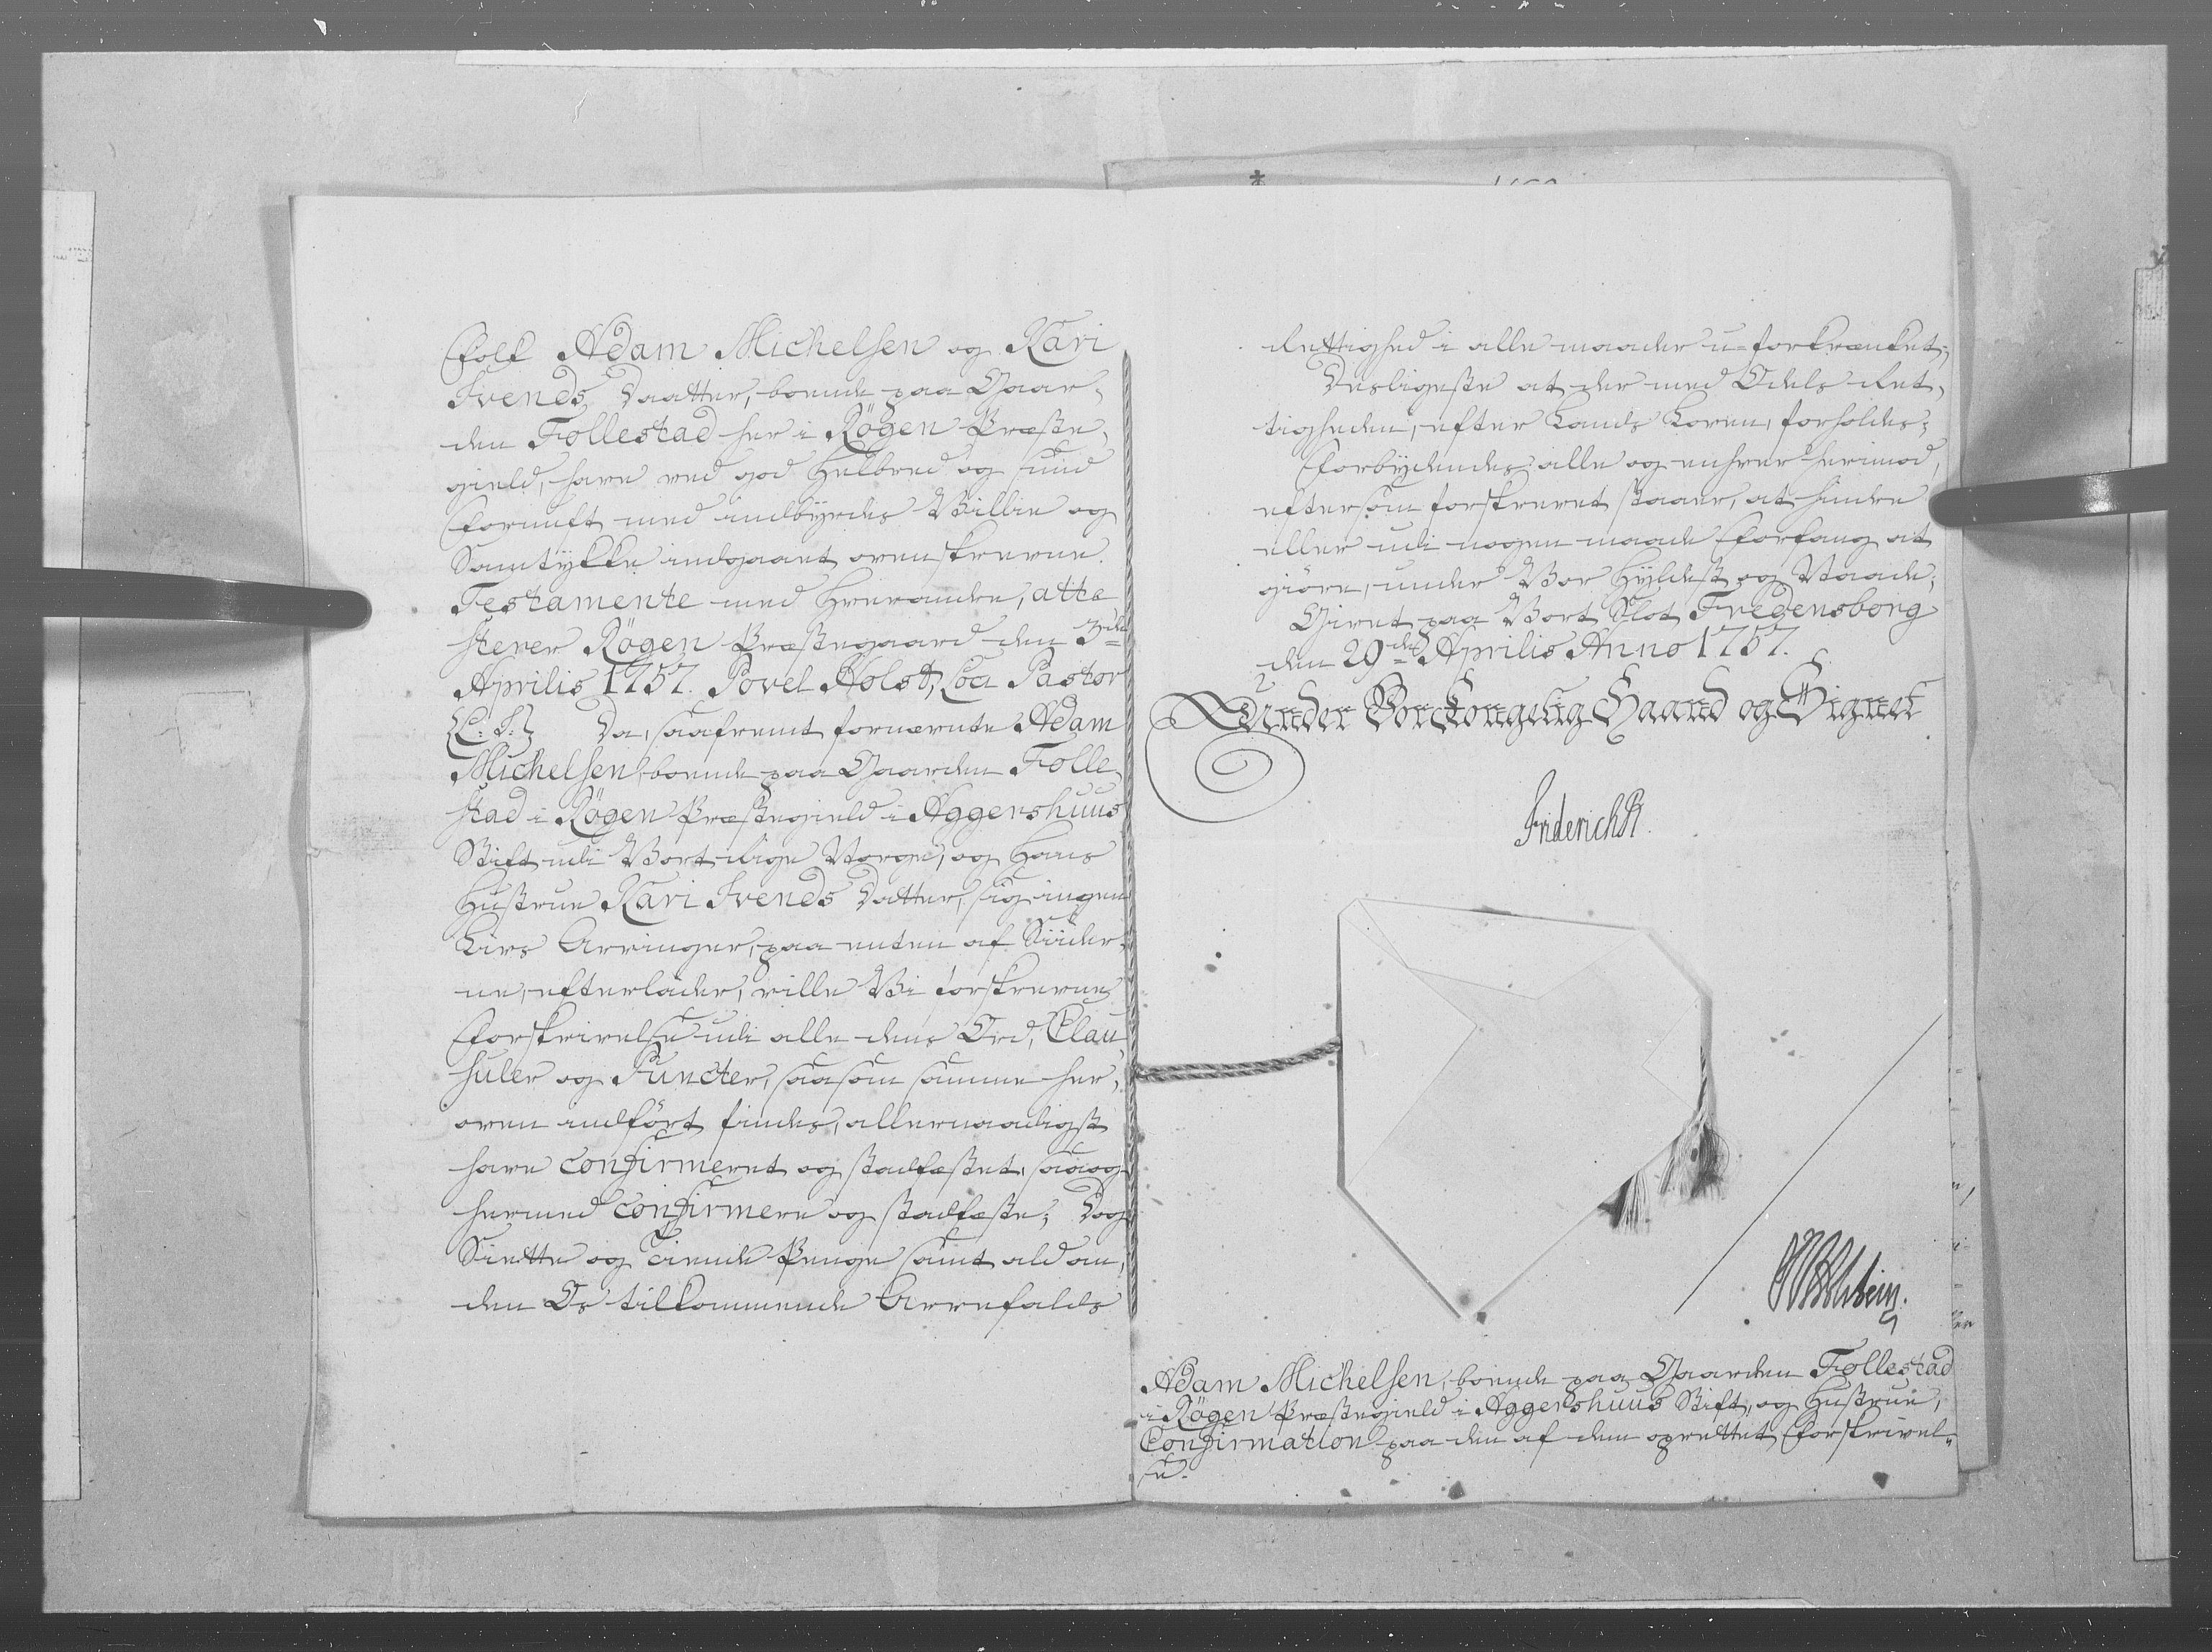 Folk Adam Michelsen og Kari
Ivends Daatter, boende paa Gaar-
den Follestad her i Rögen Præste-
gield, have ved god Helbred og sund
Fornuft med indbyrdes Villie og
Samtykke indgaaet ovenskrevne
Testamente med hverandre, atte-
sterer Rögen Præstegaard den 3de
Aprilis 1757. Povel Holst, Loci Pastor
(L: S:) Da, saafremt fornævnte Adam
Michelsen, boende paa Gaarden Folle-
stad i Rögen Præstegield i Aggershuus
Stift udi Vort Rige Norge, og Hans
Hustrue Kari Ivends Datter, sig ingen
Livs Arvinger, paa enten af Siider-
ne, efterlader, ville Vi forskrevne
Forskrivelse udi alle dens Ord, Clau-
suler og Puncter, saasom samme her-
oven indfört findes, allernaadigst
have confirmeret og stadfæstet, saa og
hermed confirmere og stadfæste; Dog
Siette og Tiende Penge samt ald an-
den Os tilkommende Arvefalds
Rettighed i alle maader u-forkrænket;
Desligeste at der med Odels Ret-
tigheden, efter Lands Loven, forholdes;
Forbydendes alle og enhver herimod,
eftersom forskrevet staaer, at hindre
eller udi nogen maade Forfang at
giöre, under Vor Hyldest og Naade;
Givet paa Vort Slot Fredensborg
den 29de Aprilis Anno 1757.
Under Vor Kongelig Haand og Signet
Friderich R.
Adam Michelsen, boende paa Gaarden Follestad
i Rögen Præstegield i Aggershuus Stift, og Hustrue,
Confirmation paa den af dem oprettet Forskrivel-
se.